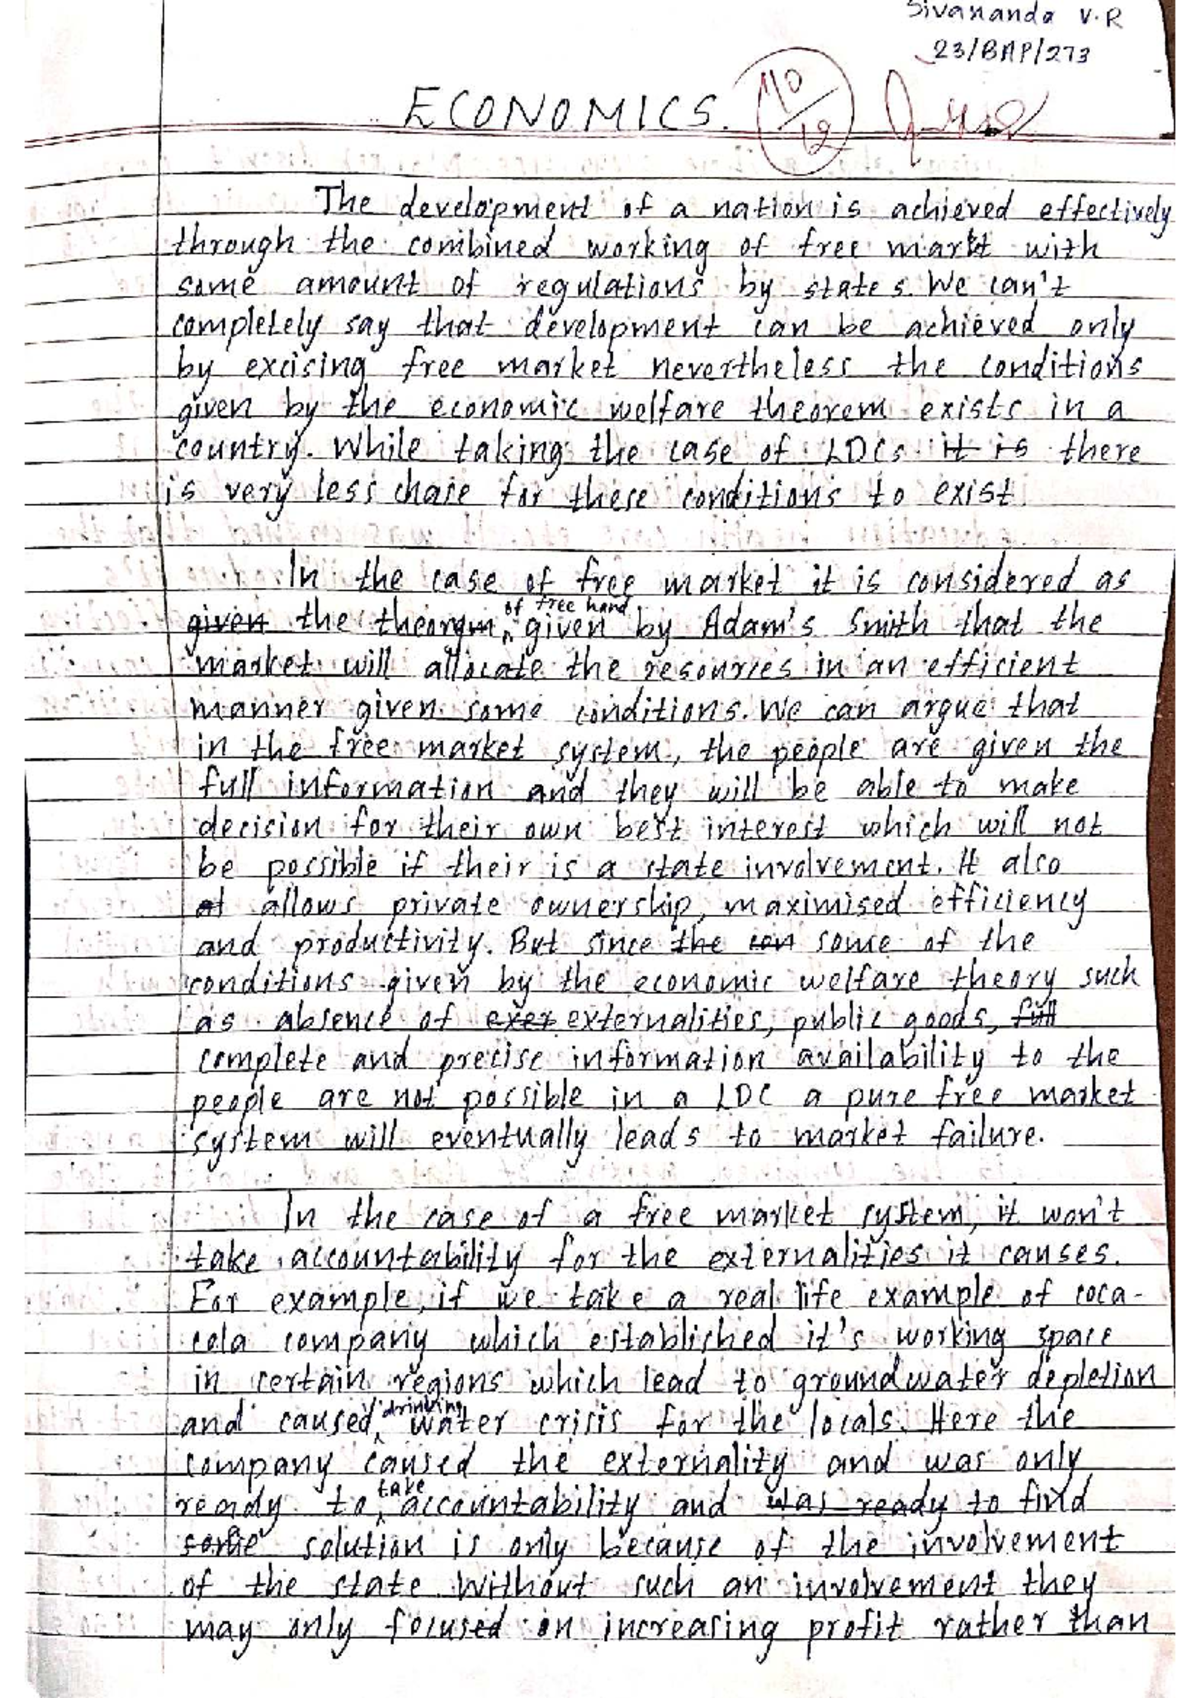 Sivananda V.R
23/BAP/273
ECONOMICS.
10/12
The development of a nation is achieved effectively
through the combined working of free markt with
some amount of regulations by states. We can't
completely say that development can be achieved only
by excising free market nevertheless the conditions
given by the economic welfare theorem exists in a
country. While taking the case of LDCs it is there
is very less chase for these conditions to exist.
In the case of free market it is considered as
given the theorym of free hand given by Adam's Smith that the
market will allocate the resources in an efficient
manner given some conditions. We can argue that
in the free market system, the people are given the
full information and they will be able to make
decision for their own best interest which will not
be possible if their is a state involvement. It also
at allows private ownership, maximised efficiency
and productivity. But since the con some of the
conditions given by the economic welfare theory such
as absence of exer externalities, public goods, full
complete and precise information availability to the
people are not possible in a LDC a pure free market
system will eventually leads to market failure.
In the case of a free market system, it won't
take accountability for the externalities it causes.
For example, if we take a real life example of coca-
cola company which established it's working space
in certain regions which lead to groundwater depletion
and caused drinking water crisis for the locals. Here the
company caused the externality and was only
ready to take accountability and was ready to find
some solution is only because of the involvement
of the state without such an involvement they
may only focused on increasing profit rather than